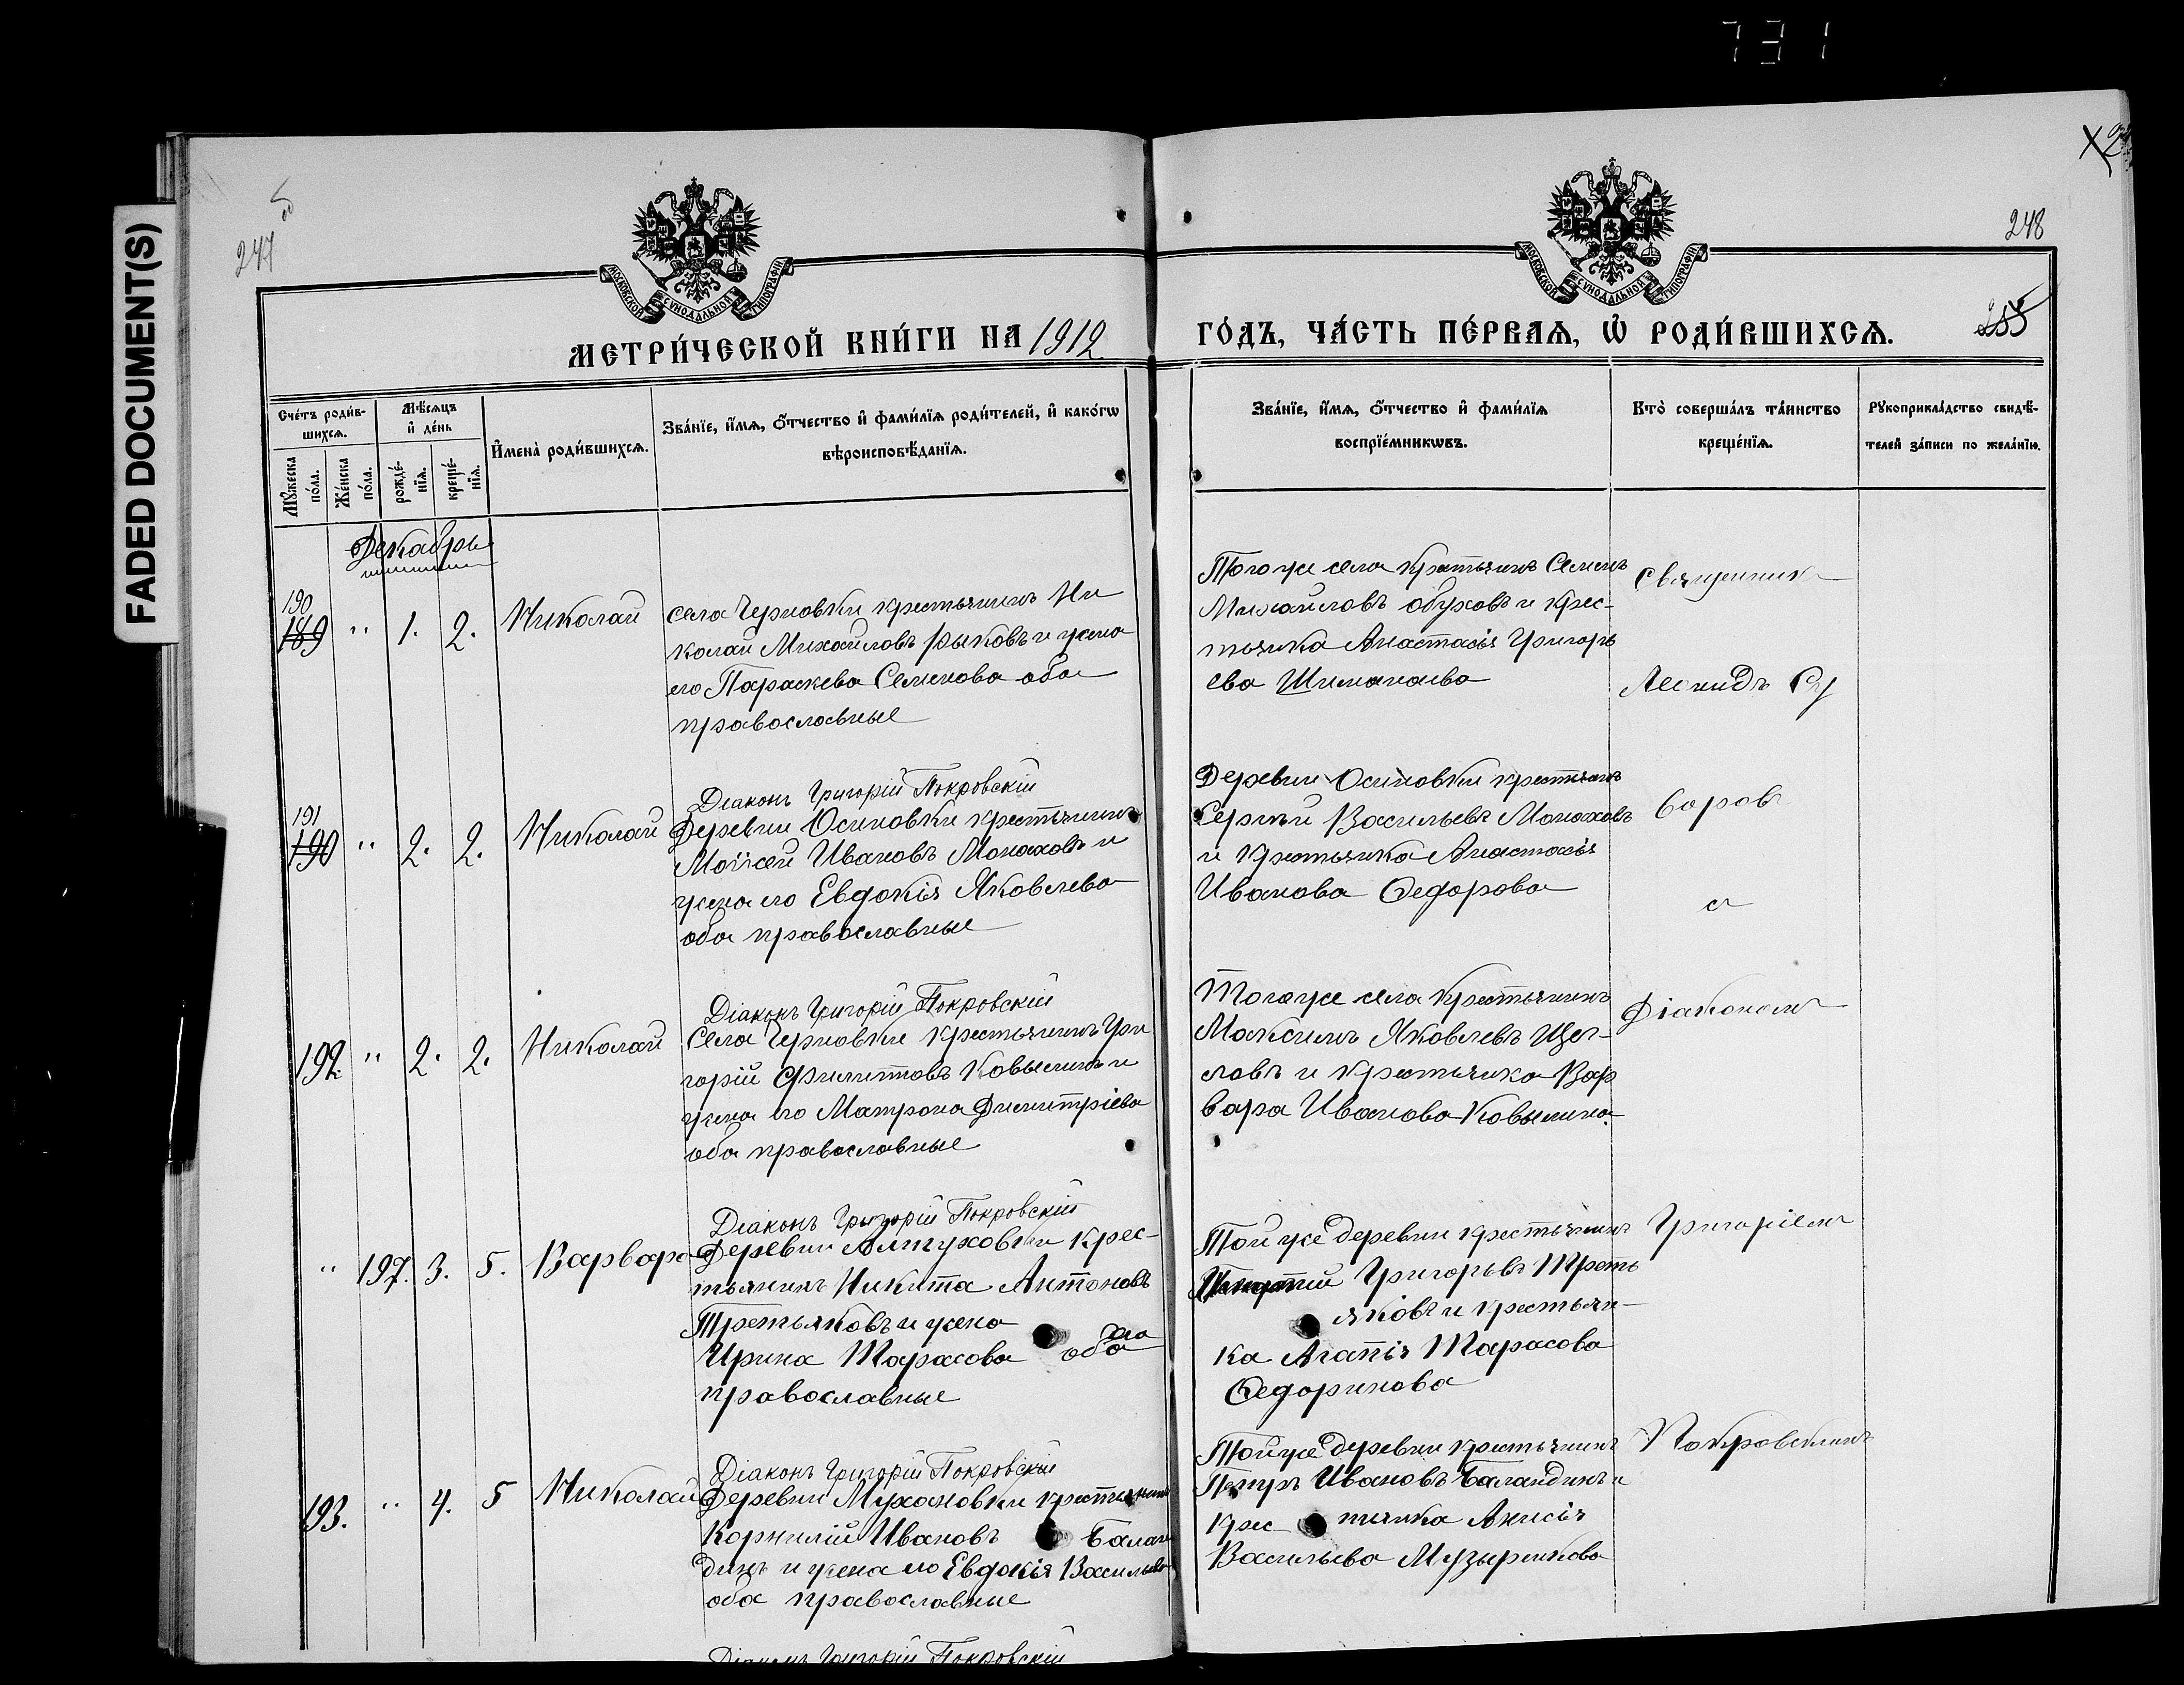 731
FADED DOCUMENT(S)
247
248
МОСКОВСКОЙ СѴНОДАЛЬНОЙ ТИПОГРАФІИ
МОСКОВСКОЙ СѴНОДАЛЬНОЙ ТИПОГРАФІИ
МЕТРИ́ЧЕСКОЙ КНИ́ГИ НА 1912
ГО́ДЪ, ЧА́СТЬ ПЕ́РВАѦ, Ѡ҆ РОДИ́ВШИХСѦ.
255
Сче́тъ роди́в-
шихсѧ.
Мѣ́сѧцъ
и҆ де́нь
Мꙋ́жеска
по́ла.
Же́нска
по́ла.
рожде́-
нїѧ.
креще́-
нїѧ.
И҆мена̀ роди́вшихсѧ.
Зва́нїе, и҆́мѧ, ѻ҆́тчество и҆ фами́лїѧ роди́телей, и҆ како́гѡ
вѣроисповѣ́данїѧ.
Зва́нїе, и҆́мѧ, ѻ҆́тчество и҆ фами́лїѧ
воспрїе́мникѡвъ.
Кто̀ соверша́лъ та́инство
креще́нїѧ.
Рꙋкоприкла́дство свидѣ́-
телей за́писи по жела́нїю.
Декабрь
190
189 " 1. 2. Николай
села Черновки крестьянинъ Ни
колай Михайловъ Рыковъ и жена
его Параскева Семенова оба
православные
Того же села крестьянинъ Семенъ
Михайловъ Обуховъ и крес-
тьянка Анастасія Григорь
ева Шиманаева
Священник
Леонидъ Су
Діаконъ Григорій Покровскій
191
190 " 2. 2. Николай
Деревни Осиновки крестьянинъ
Моѵсей Ивановъ Монаховъ и
жена его Евдокія Яковлева
оба православные
Деревни Осиновки крестьянинъ
Сергѣй Васильевъ Монаховъ
и крестьянка Анастасія
Иванова Ѳедорова
воровъ
с
Діаконъ Григорій Покровскій
192. " 2. 2. Николай
Села Черновки крестьянинъ Гри
горій Филипповъ Ковылинъ и
жена его Матрона Димитріева
оба православные
Того же села крестьянинъ
Максимъ Яковлевъ Щег-
ловъ и крестьянка Вар
вара Иванова Ковылина.
Діакономъ
Діаконъ Григорій Покровскій
" 197. 3. 5. Варвара
Деревни Алтуховки крес-
тьянинъ Никита Антоновъ
Третьяковъ и жена его
Ирина Тарасова оба
православные
Той же деревни крестьянинъ
Григорьевъ Треть
яковъ и крестьян-
ка Агапія Тарасова
Ѳедоринова
Григоріемъ
Діаконъ Григорій Покровскій
193. " 4. 5 Николай
Деревни Мухановки крестьянинъ
Корнилій Ивановъ Балан
динъ и жена его Евдокія Васильева
оба православные
Той же деревни крестьянинъ
Петръ Ивановъ Баландинъ и
крес- тьянка Анисія
Васильева Музырикова
Покровскимъ
Діаконъ Григорій Покровскій